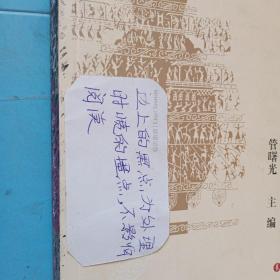 边上的黑点,为处理
时喷的墨点,不影响
阅读
管曙光 主编